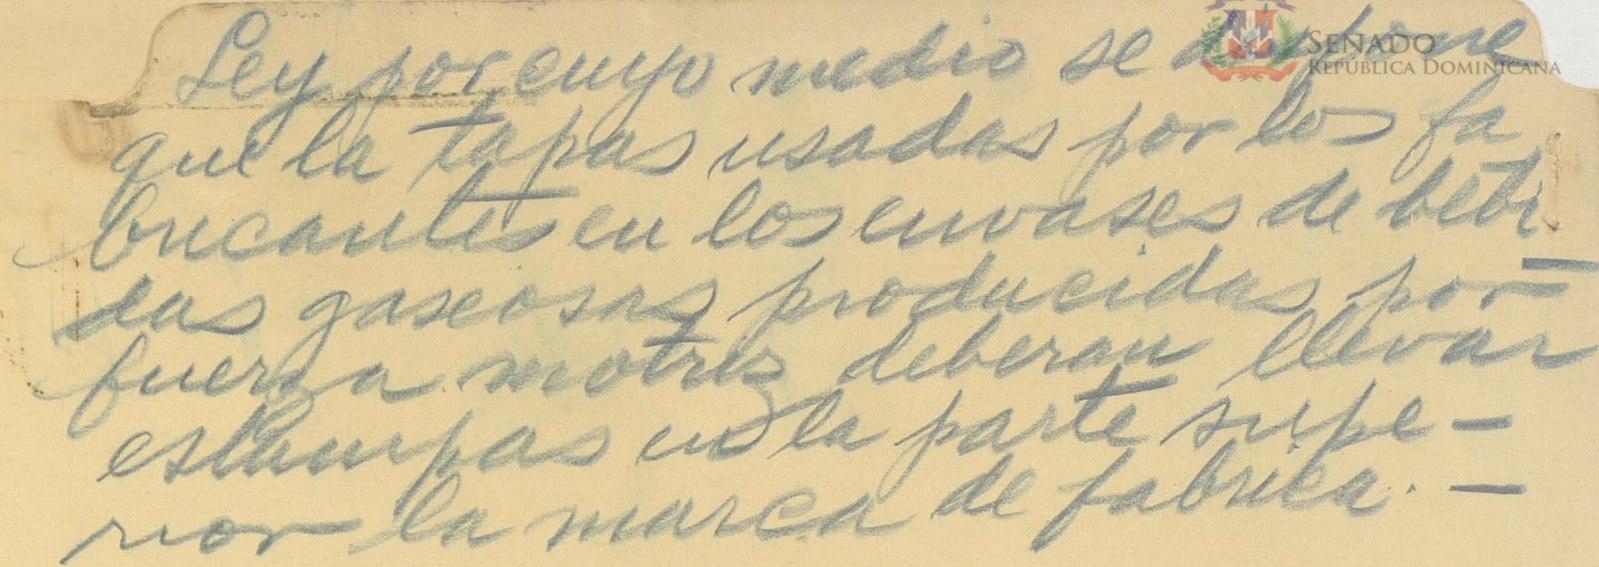 Ley por cuyo medio se
SENADO
REPÚBLICA DOMINICANA
que la tapas usadas por los fa
bricantes en los envases de bebi
das gaseosas producidas por
fuerza motriz deberan llevar
estampas en la parte supe-
rior la marca de fabrica. -